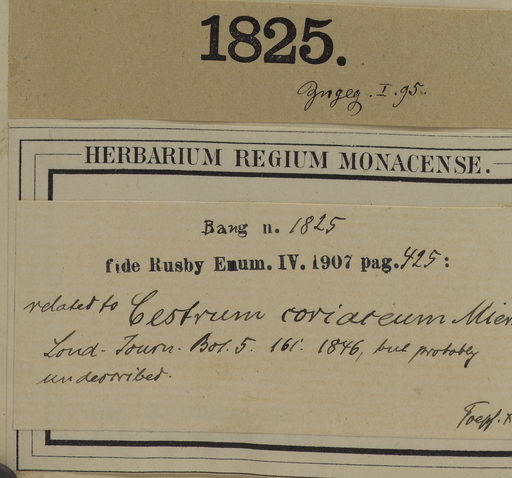 1825.
Zngeg. I. 95.
HERBARIUM REGIUM MONACENSE.
Bang n. 1825
fide Rusby Enum. IV. 1907 pag. 425:
related to Cestrum coriaceum Mier
Lond. Journ. Bot. 5. 161. 1846, but probably
undescribed.
Toepf.